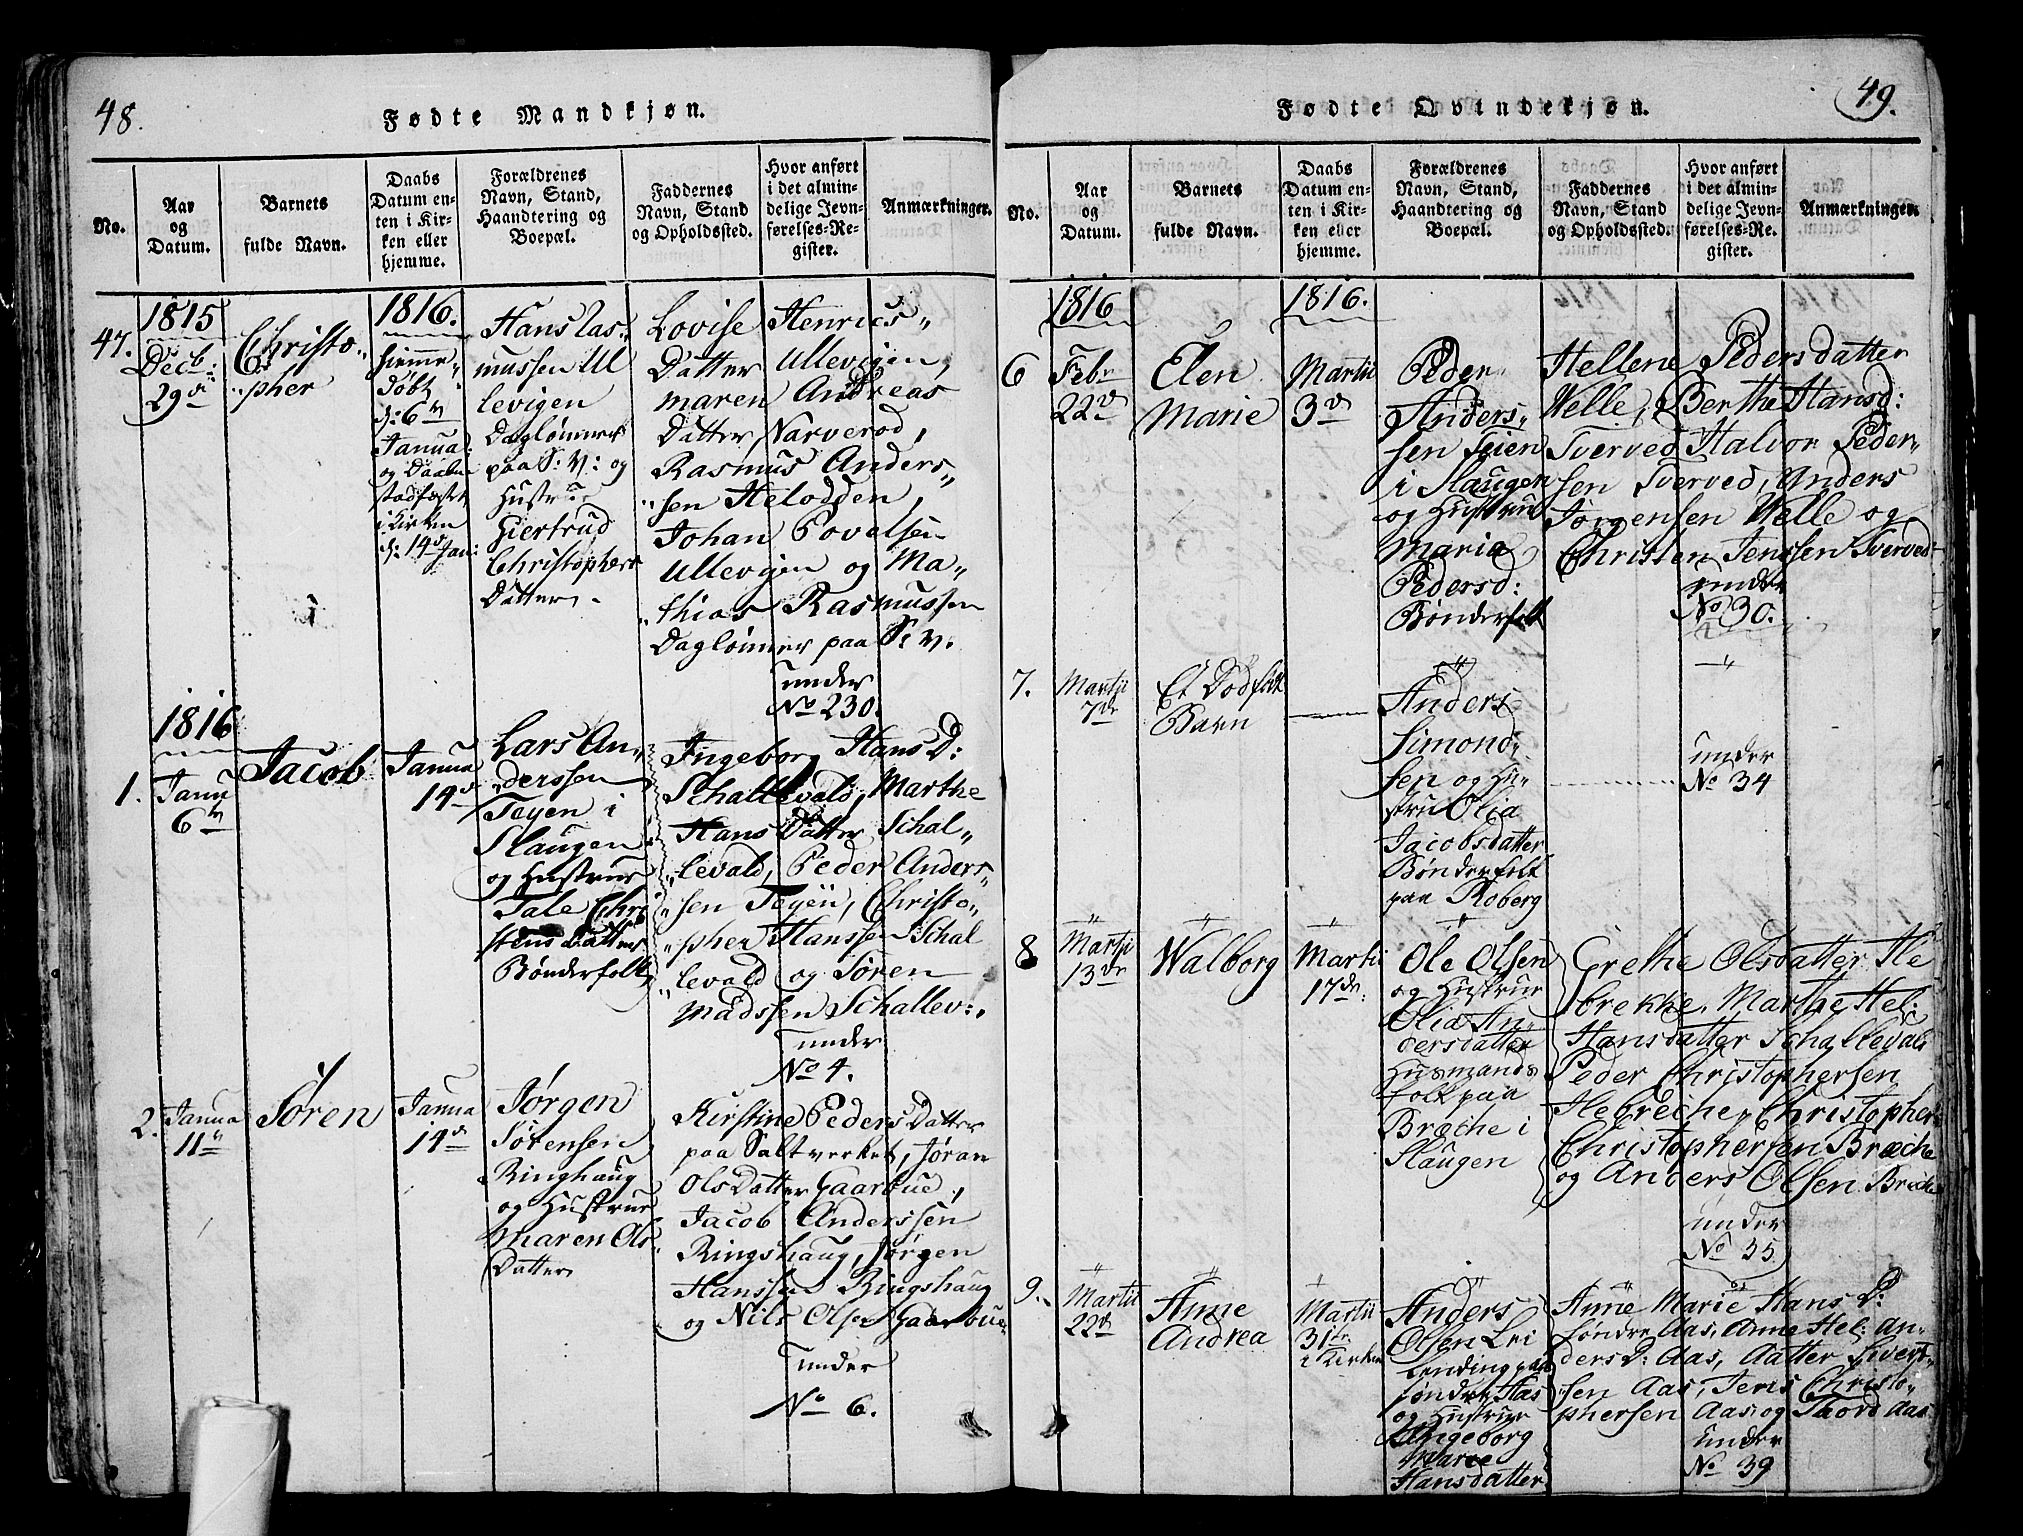 48.
Fødte Mandkjøn.
No.
Aar
og
Datum.
Barnets
fulde Navn.
Daabs
Datum en-
ten i Kir-
ken eller
hjemme.
Forældrenes
Navn, Stand,
Haandtering og
Boepæl.
Faddernes
Navn, Stand
og Opholdssted.
Hvor anført
i det almin-
delige Jevn-
førelses-Re-
gister.
Anmærkninger.
47.
1815
Decb:
29de
Christo„
„pher
1816.
hjemme„
døbt
d: 6te
Janua:
og Daaben
stadfæstet
i Kirken
d: 14de Jan:
Hans Ras„
mussen Ul
levigen
Daglønner
paa S: V: og
Hustrue
Giertrud
Christophers
Datter.
Lovise Henrics„
Datter Ullevigen,
Maren Andreas
Datter Narverød,
Rasmus Anders„
„sen Helodden,
Johan Povelsen
Ullevigen og Ma„
„thias Rasmussen
Daglønner paa S: V.
under
No 230.
1816
1.
Janu
6te
Jacob
Janua
14de
Lars An„
„derssen
Teyen i
Slaugen
og Hustrue
Tale Chri
stens Datter
Bønderfolk
Ingebor Hans D:
Schallevald, Marthe
Hans Datter Schal„
„levald, Peder Anders„
„sen Teyen, Christo„
„pher Hanssen Schal
„levald og Søren
Madssen Schallev:.
under
No 4.
2.
Janua
11te
Søren
Janua
14de
Jørgen
Sørensen
Ringhaug
og Hustrue
Maren Ols„
Datter
Kirstine Peders Datter
paa Saltverket, Jøran
Ols Datter Gaarbue,
Jacob Anderssen
Ringshaug, Jørgen
Hanssen Ringshaug
og Nils Olsen Gaarbue.
under
No 6.
49.
Fødte Qvindekjøn.
No.
Aar
og
Datum.
Barnets
fulde Navn.
Daabs
Datum en-
ten i Kir-
ken eller
hjemme.
Forældrenes
Navn, Stand,
Haandtering og
Boepæl.
Faddernes
Navn, Stand
og Opholdssted.
Hvor anført
i det almin-
delige Jevn-
førelses-Re-
gister.
Anmærkninger.
1816
1816.
6
Febr
22de
Elen
Marie
Martii
3de
Peder
Anders„
sen Teien
i Slaugen
og Hustrue
Maria
Pedersd:
Bønderfolk
Hellene Pedersdatter
Welle, Berthe Hansd:
Tverved Halvor Peder„
sen Tverved, Anders
Jørgensen Welle og
Christen Jenssen Tverved
under
No 30.
7.
Martii
7de
Et Dødfødt
Barn
Anders
Simond„
sen og Hu„
stru Olia
Jacobsdatter
Bønderfolk
paa Roberg
under
No 34
8
Martii
13de
Walborg
Martii
17de:
Ole Olsen
og Hustrue
Olia An„
dersdatter
Husmands
folk paa
Bræche i
Slaugen
Grethe Olsdatter He
brekke, Marthe Hel:
Hansdatter Schallevald
Peder Christophersen
Hebreche, Christopher
Christophersen Bræche
og Anders Olsen Bræche
under
No 35
9.
Martii
22de
Anne
Andrea
Martii
31te
i Kirken
Anders
Olsen Lei
lending paa
søndre Aas
og Hustrue
Ingeborg
Marie
Hansdatter
Anne Marie Hans D:
søndre Aas, Anne Hel: An„
ders D: Aas, Aatter Sivert„
sen Aas, Jens Christo„
phersen Aas, og Thord Aas
under
No 39